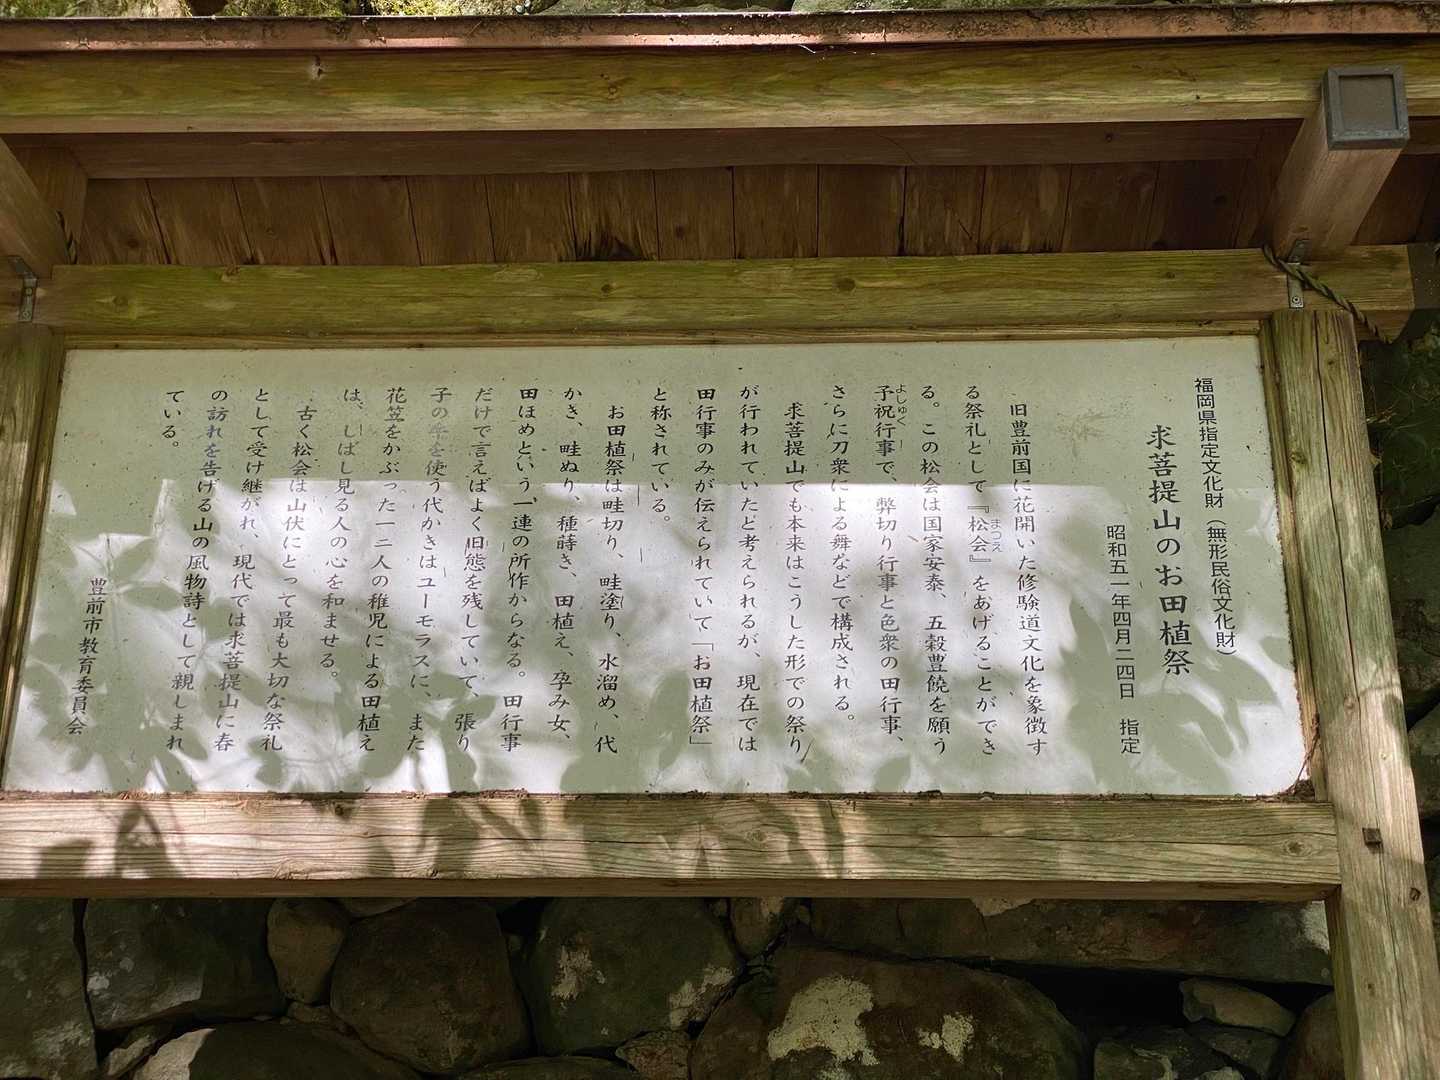 福岡県指定文化財（無形民俗文化財）
求菩提山のお田植祭
昭和五一年四月二四日　指定
旧豊前国に花開いた修験道文化を象徴す
る祭礼として『松会』をあげることができ
まつえ
る。この松会は国家安泰、五穀豊饒を願う
予祝行事で、弊切り行事と色衆の田行事、
よしゅく
さらに刀衆による舞などで構成される。
求菩提山でも本来はこうした形での祭り
が行われていたと考えられるが、現在では
田行事のみが伝えられていて「お田植祭」
と称されている。
お田植祭は畦切り、畦塗り、水溜め、代
かき、畦ぬり、種蒔き、田植え、孕み女、
田ほめという一連の所作からなる。田行事
だけで言えばよく旧態を残していて、張り
子の牛を使う代かきはユーモラスに、また
花笠をかぶった一二人の稚児による田植え
は、しばし見る人の心を和ませる。
古く松会は山伏にとって最も大切な祭礼
として受け継がれ、現代では求菩提山に春
の訪れを告げる山の風物詩として親しまれ
ている。
豊前市教育委員会